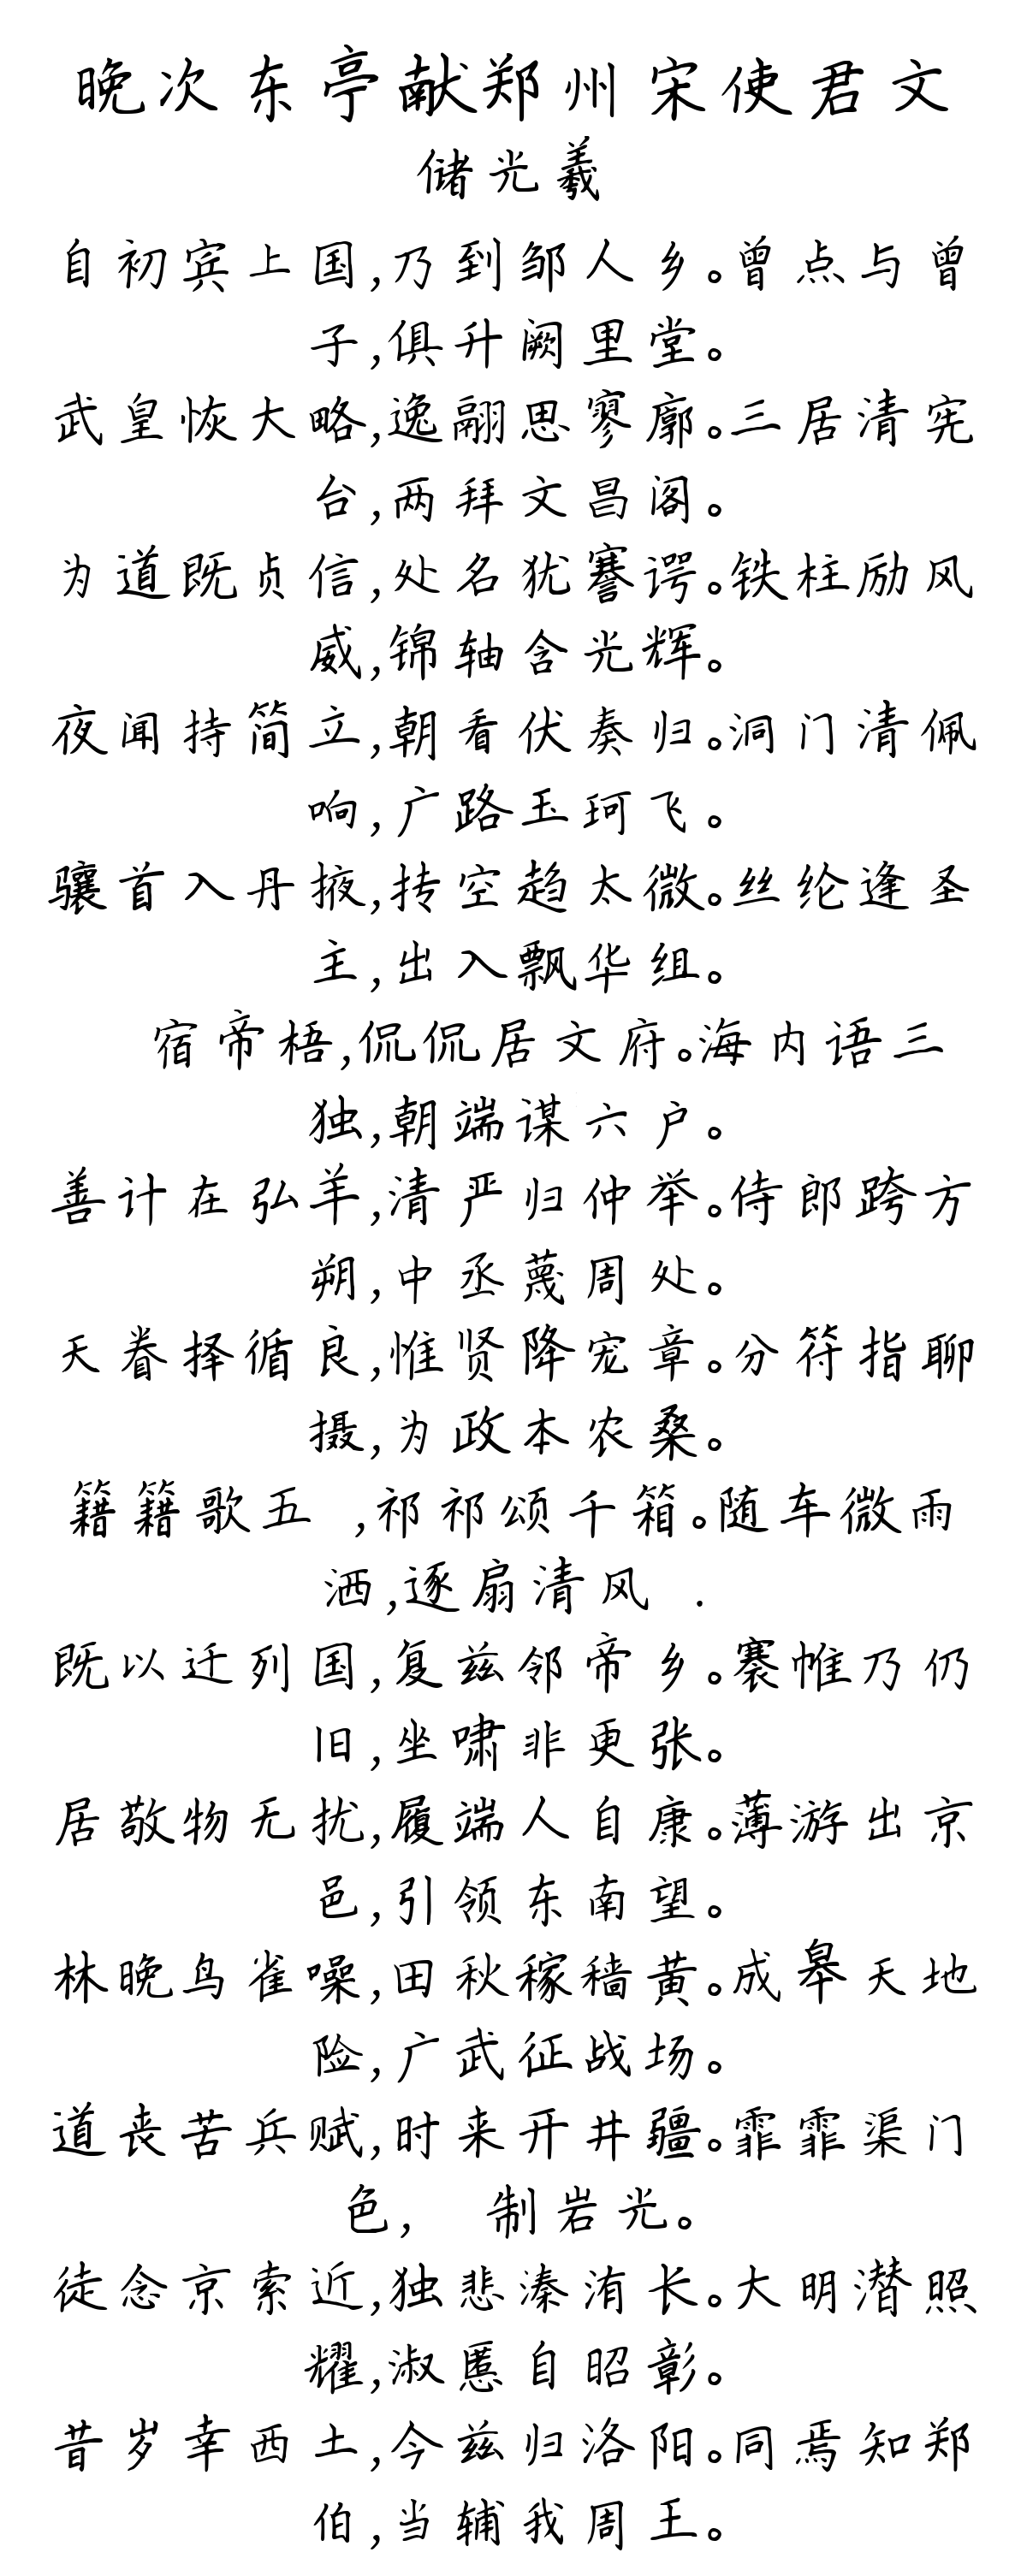 晚次东亭献郑州宋使君文
储光羲
自初宾上国,乃到邹人乡。曾点与曾
子,俱升阙里堂。
武皇恢大略,逸翮思寥廓。三居清宪
台,两拜文昌阁。
为道既贞信,处名犹謇谔。铁柱励风
威,锦轴含光辉。
夜闻持简立,朝看伏奏归。洞门清佩
响,广路玉珂飞。
骧首入丹掖,抟空趋太微。丝纶逢圣
主,出入飘华组。
宿帝梧,侃侃居文府。海内语三
独,朝端谋六户。
善计在弘羊,清严归仲举。侍郎跨方
朔,中丞蔑周处。
天眷择循良,惟贤降宠章。分符指聊
摄,为政本农桑。
籍籍歌五 ,祁祁颂千箱。随车微雨
洒,逐扇清风 .
既以迁列国,复兹邻帝乡。褰帷乃仍
旧,坐啸非更张。
居敬物无扰,履端人自康。薄游出京
邑,引领东南望。
林晚鸟雀噪,田秋稼穑黄。成皋天地
险,广武征战场。
道丧苦兵赋,时来开井疆。霏霏渠门
色, 制岩光。
徒念京索近,独悲溱洧长。大明潜照
耀,淑慝自昭彰。
昔岁幸西土,今兹归洛阳。同焉知郑
伯,当辅我周王。